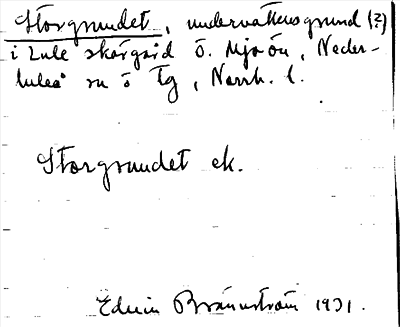 Storgrundet, undervattensgrund (?)
i Lule skärgård ö. Mjoön, Neder-
luleå sn ö Tg, Norrb. l.
Storgrundet ek.
Edvin Brännström 1931.